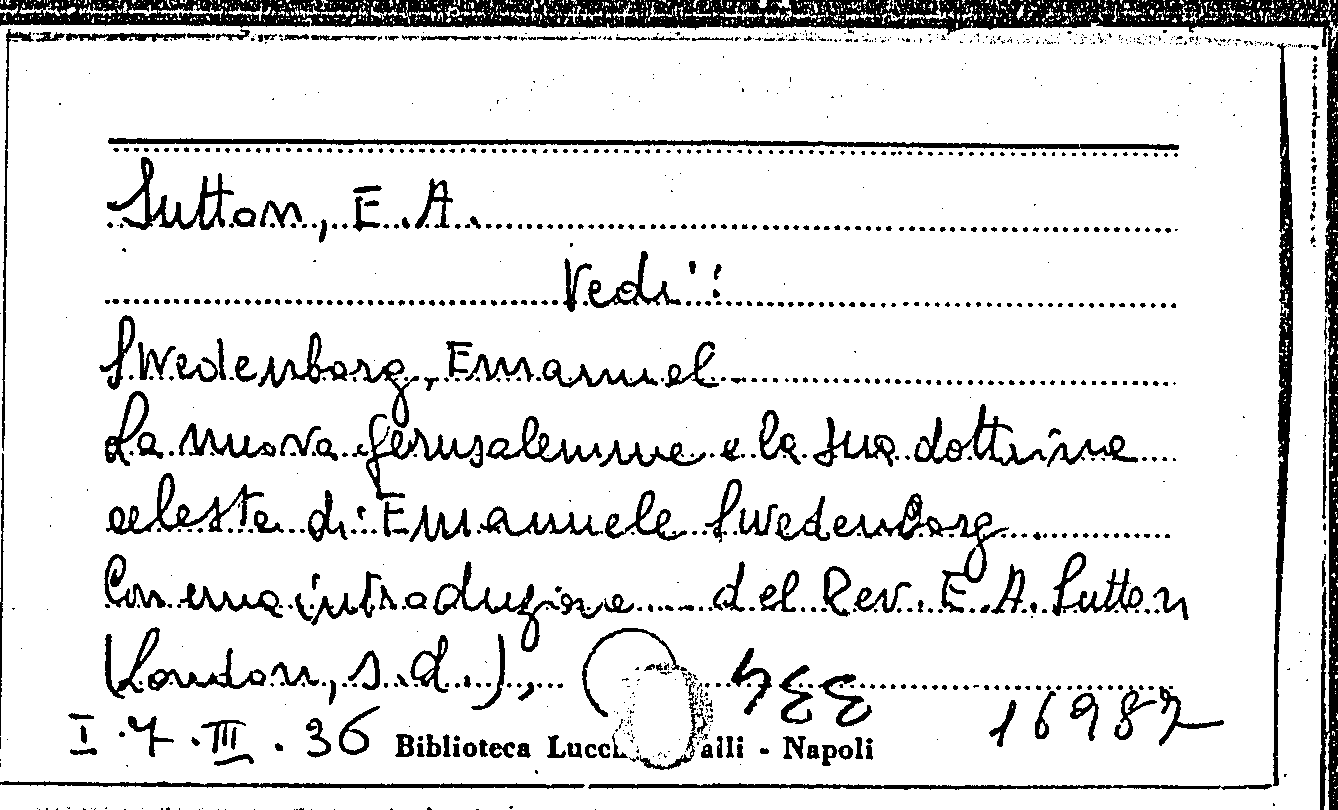 Sutton, E. A.
Vedi:
Swedenborg, Emanuel
La nuova Gerusalemme e la sua dottrina
celeste di Emanuele Swedenborg
Con una introduzione del Rev. E. A. Sutton
(London, s.d.),
I. 7. III. 36 Biblioteca Lucc alli - Napoli
16987